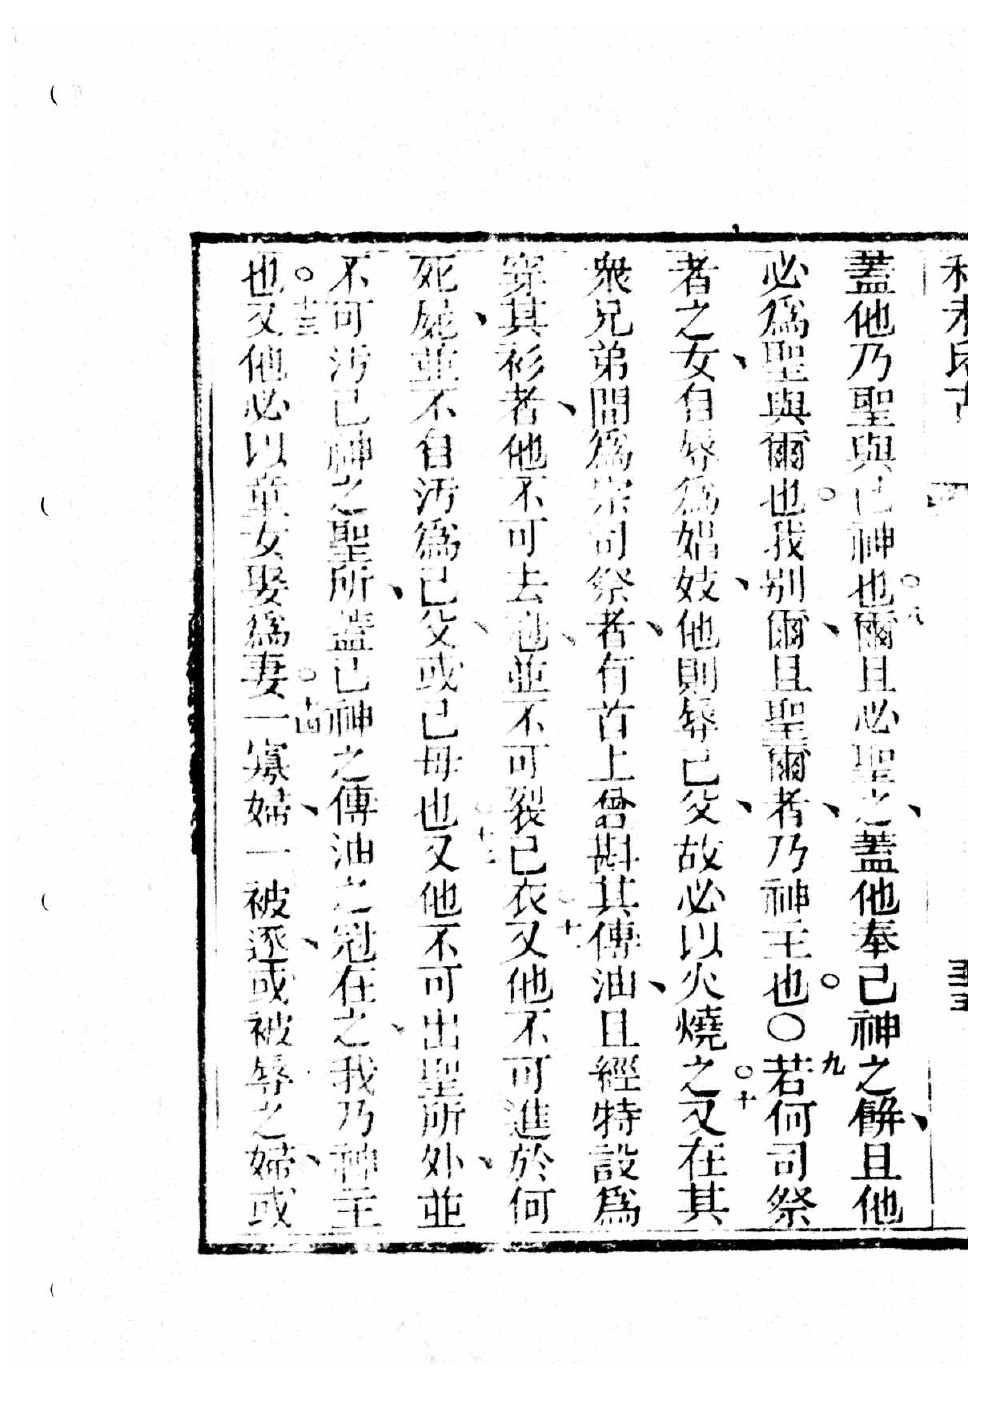 蓋他乃聖與己神也○八爾且必聖之蓋他奉己神之餅且他
必爲聖與爾也○我别爾且聖爾者乃神主也○〇九若何司祭
者之女自辱爲娼妓他則辱己父故必以火燒之○十又在其
衆兄弟間爲宗司祭者有首上曾斟其傅油且經特設爲
穿其衫者他不可去他並不可裂己衣○十一又他不可進於何
死屍並不自汚爲己父或己母也○十二又他不可出聖所外並
不可汚己神之聖所蓋己神之傅油之冠在之我乃神主
也○十三又他必以童女娶爲妻○十四一寡婦一被逐或被辱之婦或